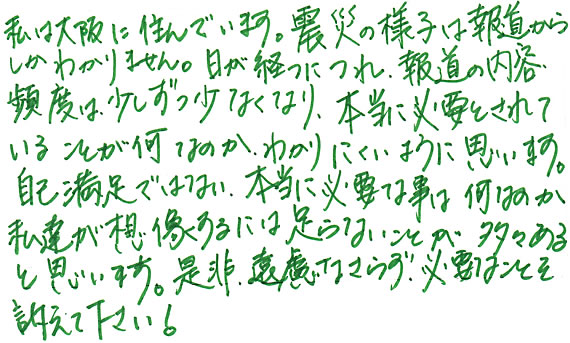 私は大阪に住んでいます。震災の様子は報道から
しかわかりません。日が経つにつれ、報道の内容・
頻度は、少しずつ少なくなり、本当に必要とされて
いることが何なのか、わかりにくいように思います。
自己満足ではない、本当に必要な事は何なのか
私達が想像するには足らないことが多々ある
と思います。是非、遠慮なさらず、必要なことを
訴えて下さい!